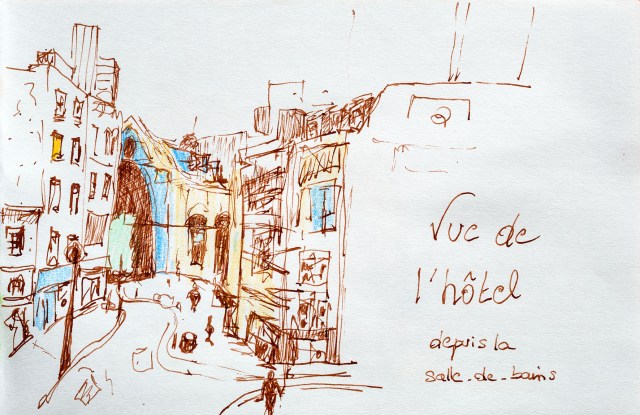 Vue de
l'hôtel
depuis la
salle-de-bains